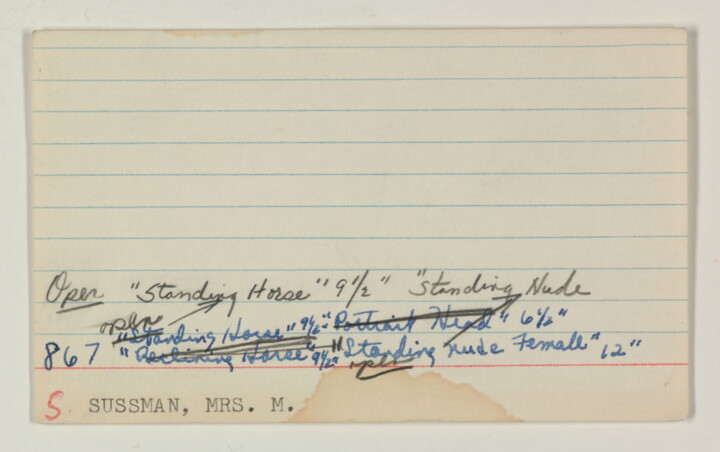 Oper "Standing Horse" 9½" "Standing Nude
oper
"Standing Horse" 9½" Portrait Head" 6½"
867 "Reclining Horse" 9½" "Standing nude Female" 12"
S. SUSSMAN, MRS. M.